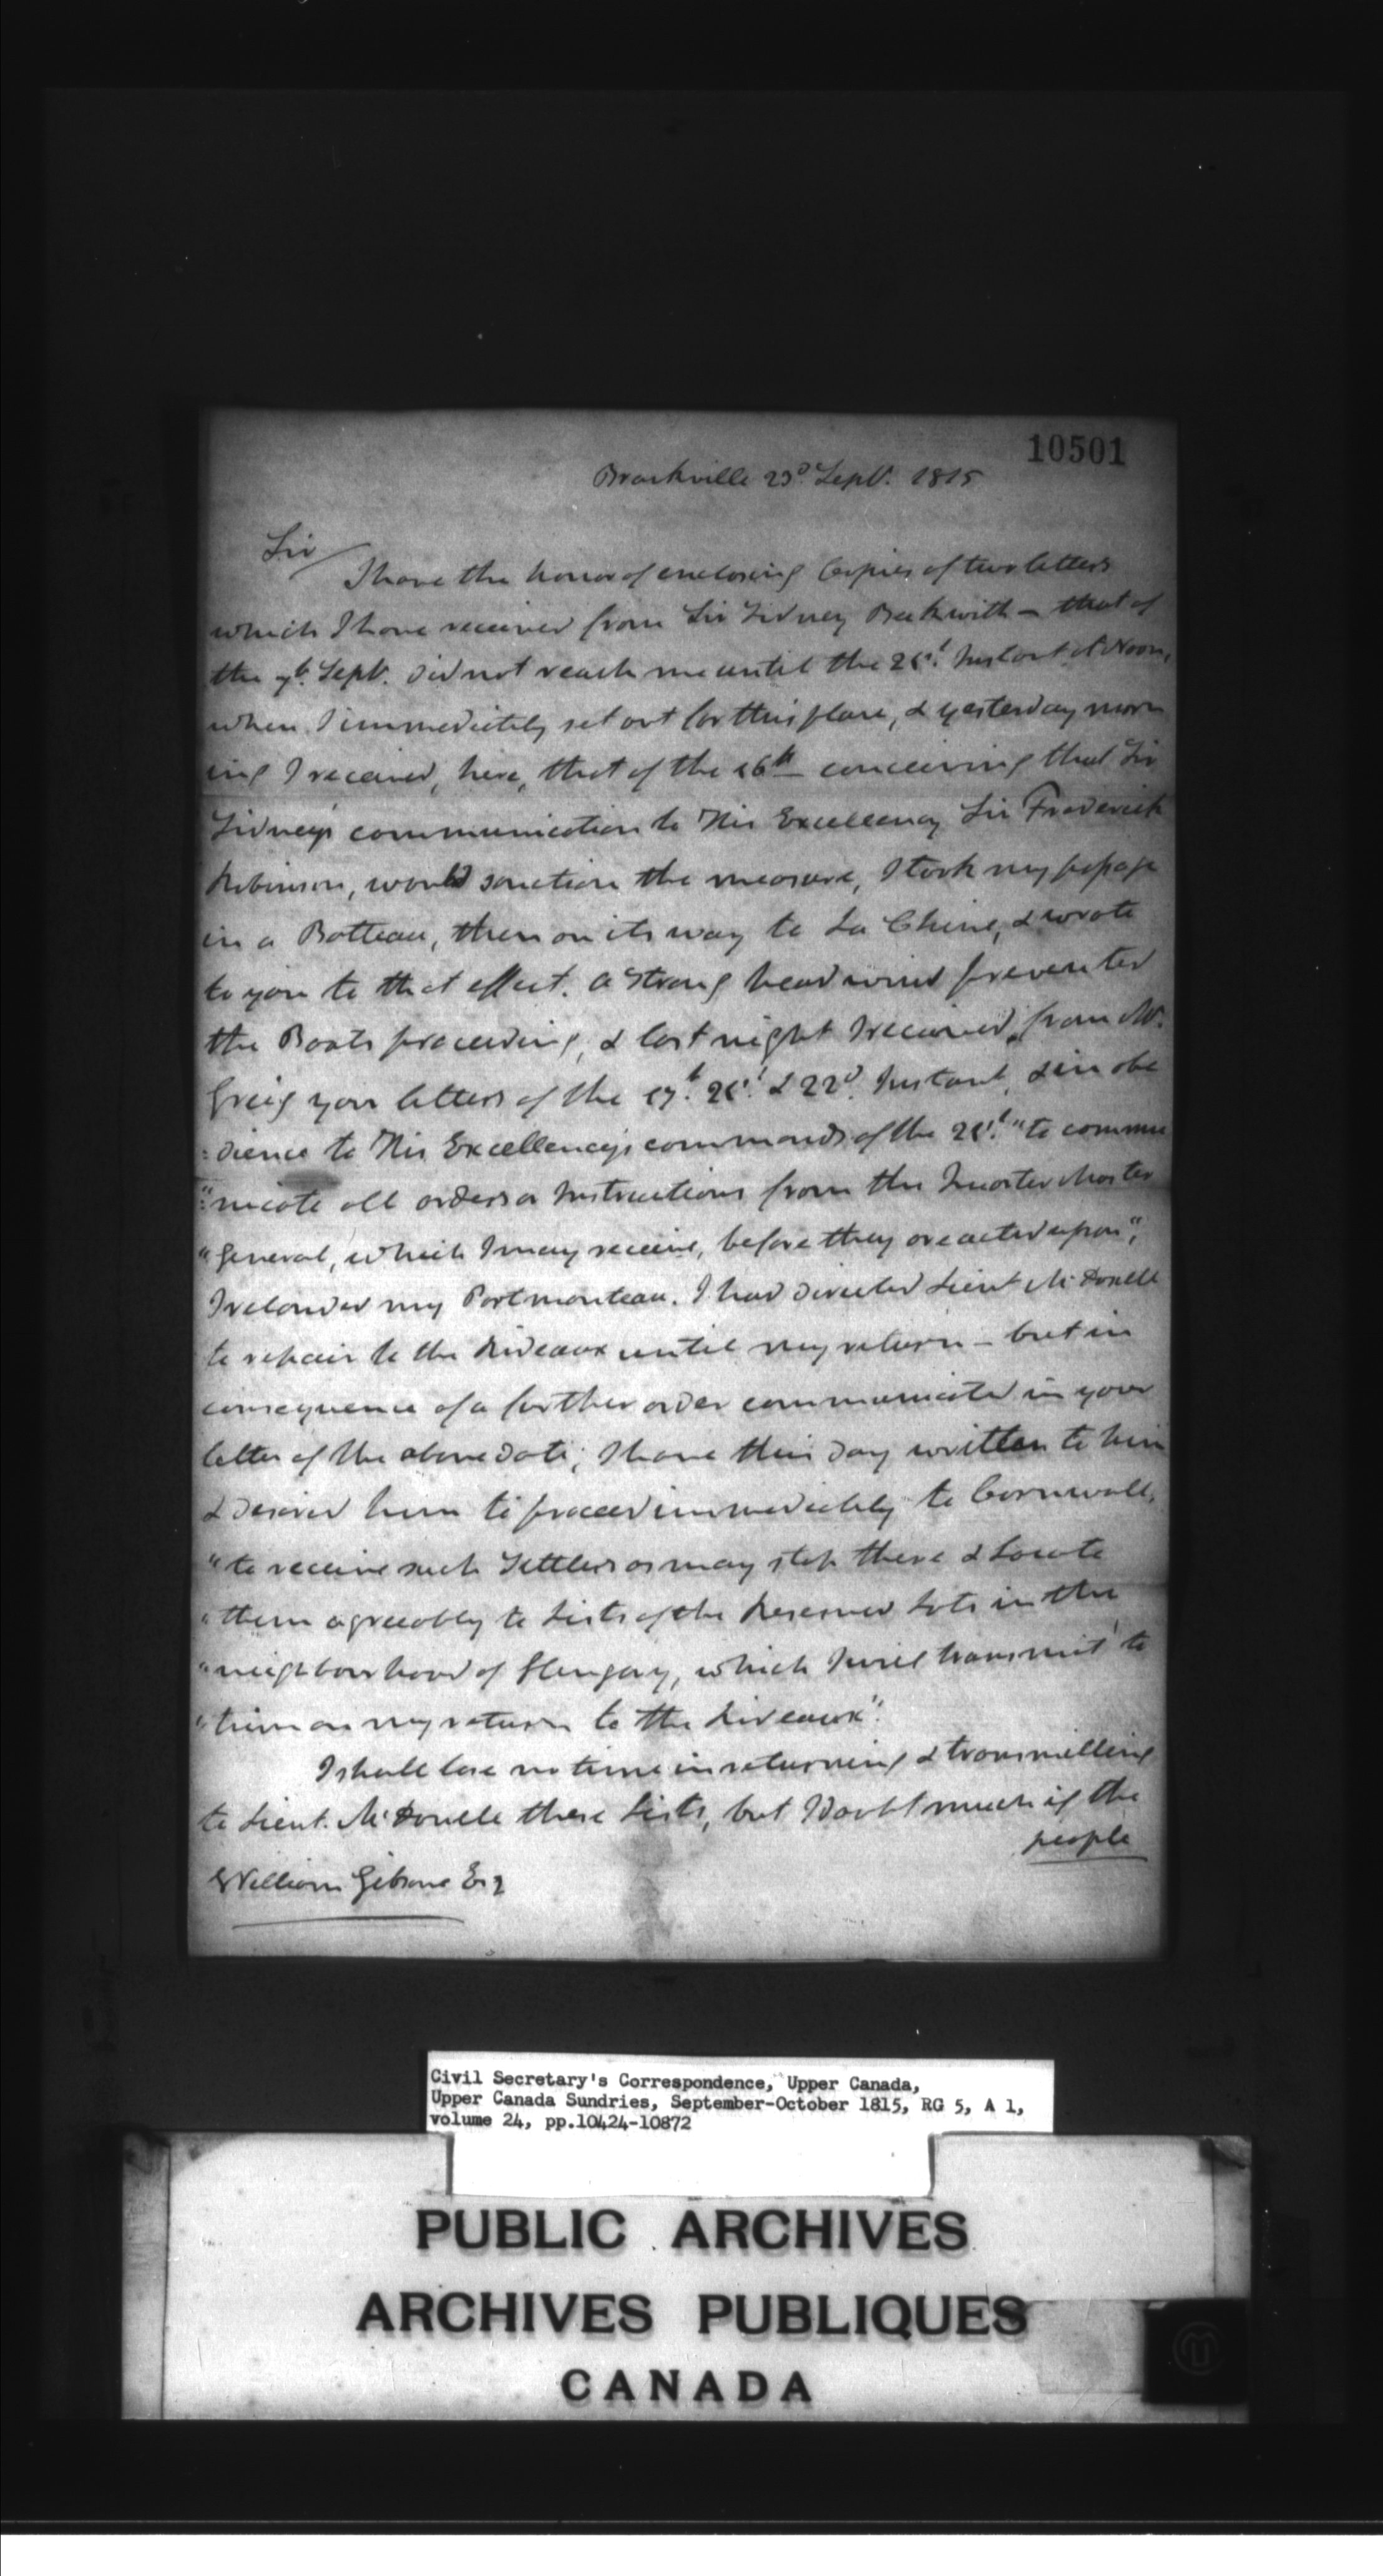 10501
Brockville 23d Septr. 1815
Sir
I have the honor of enclosing Copies of two letters
which I have received from Sir Sidney Beckwith – that of
the 7th Septr. did not reach me until the 21st Instant at Noon,
when I immediately set out for this place, & yesterday morn
ing I received, here, that of the 16th conceiving that Sir
Sidney's communication to His Excellency Sir Frederick
Robinson, would sanction the measure, I took my passage
in a Batteau, then on its way to La Chine, & wrote
to you to that effect. A strong head wind prevented
the Boats proceeding, & last night I received, from Mr.
Greig your letters of the 17th. 21st. & 22d. Instant, & in obe
=dience to His Excellency's commands of the 21st. "to commu
"nicate all orders or Instructions from the Quarter Master
"General, which I may receive, before they are acted upon",
I relanded my Portmanteau. I had directed Lieut McDonell
to repair to the Rideaux until my return – but in
consequence of a further order communicated in your
letter of the above date, I have this day written to him
& desired him to proceed immediately to Cornwall,
"to receive such Settlers as may stop there & locate
"them agreeably to Lists of the Reserved Lots in the
"neighbourhood of Glengary, which I will transmit to
"him on my return to the Rideaux".
I shall lose no time in returning & transmitting
to Lieut. McDonell these Lists, but I doubt much if the
people
William Gibsone Esq
Civil Secretary's Correspondence, Upper Canada,
Upper Canada Sundries, September-October 1815, RG 5, A 1,
volume 24, pp.10424-10872
PUBLIC ARCHIVES
ARCHIVES PUBLIQUES
CANADA